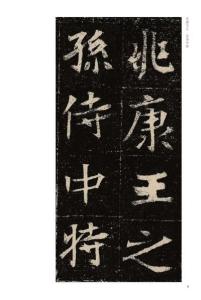 兆康王之
孫侍中特